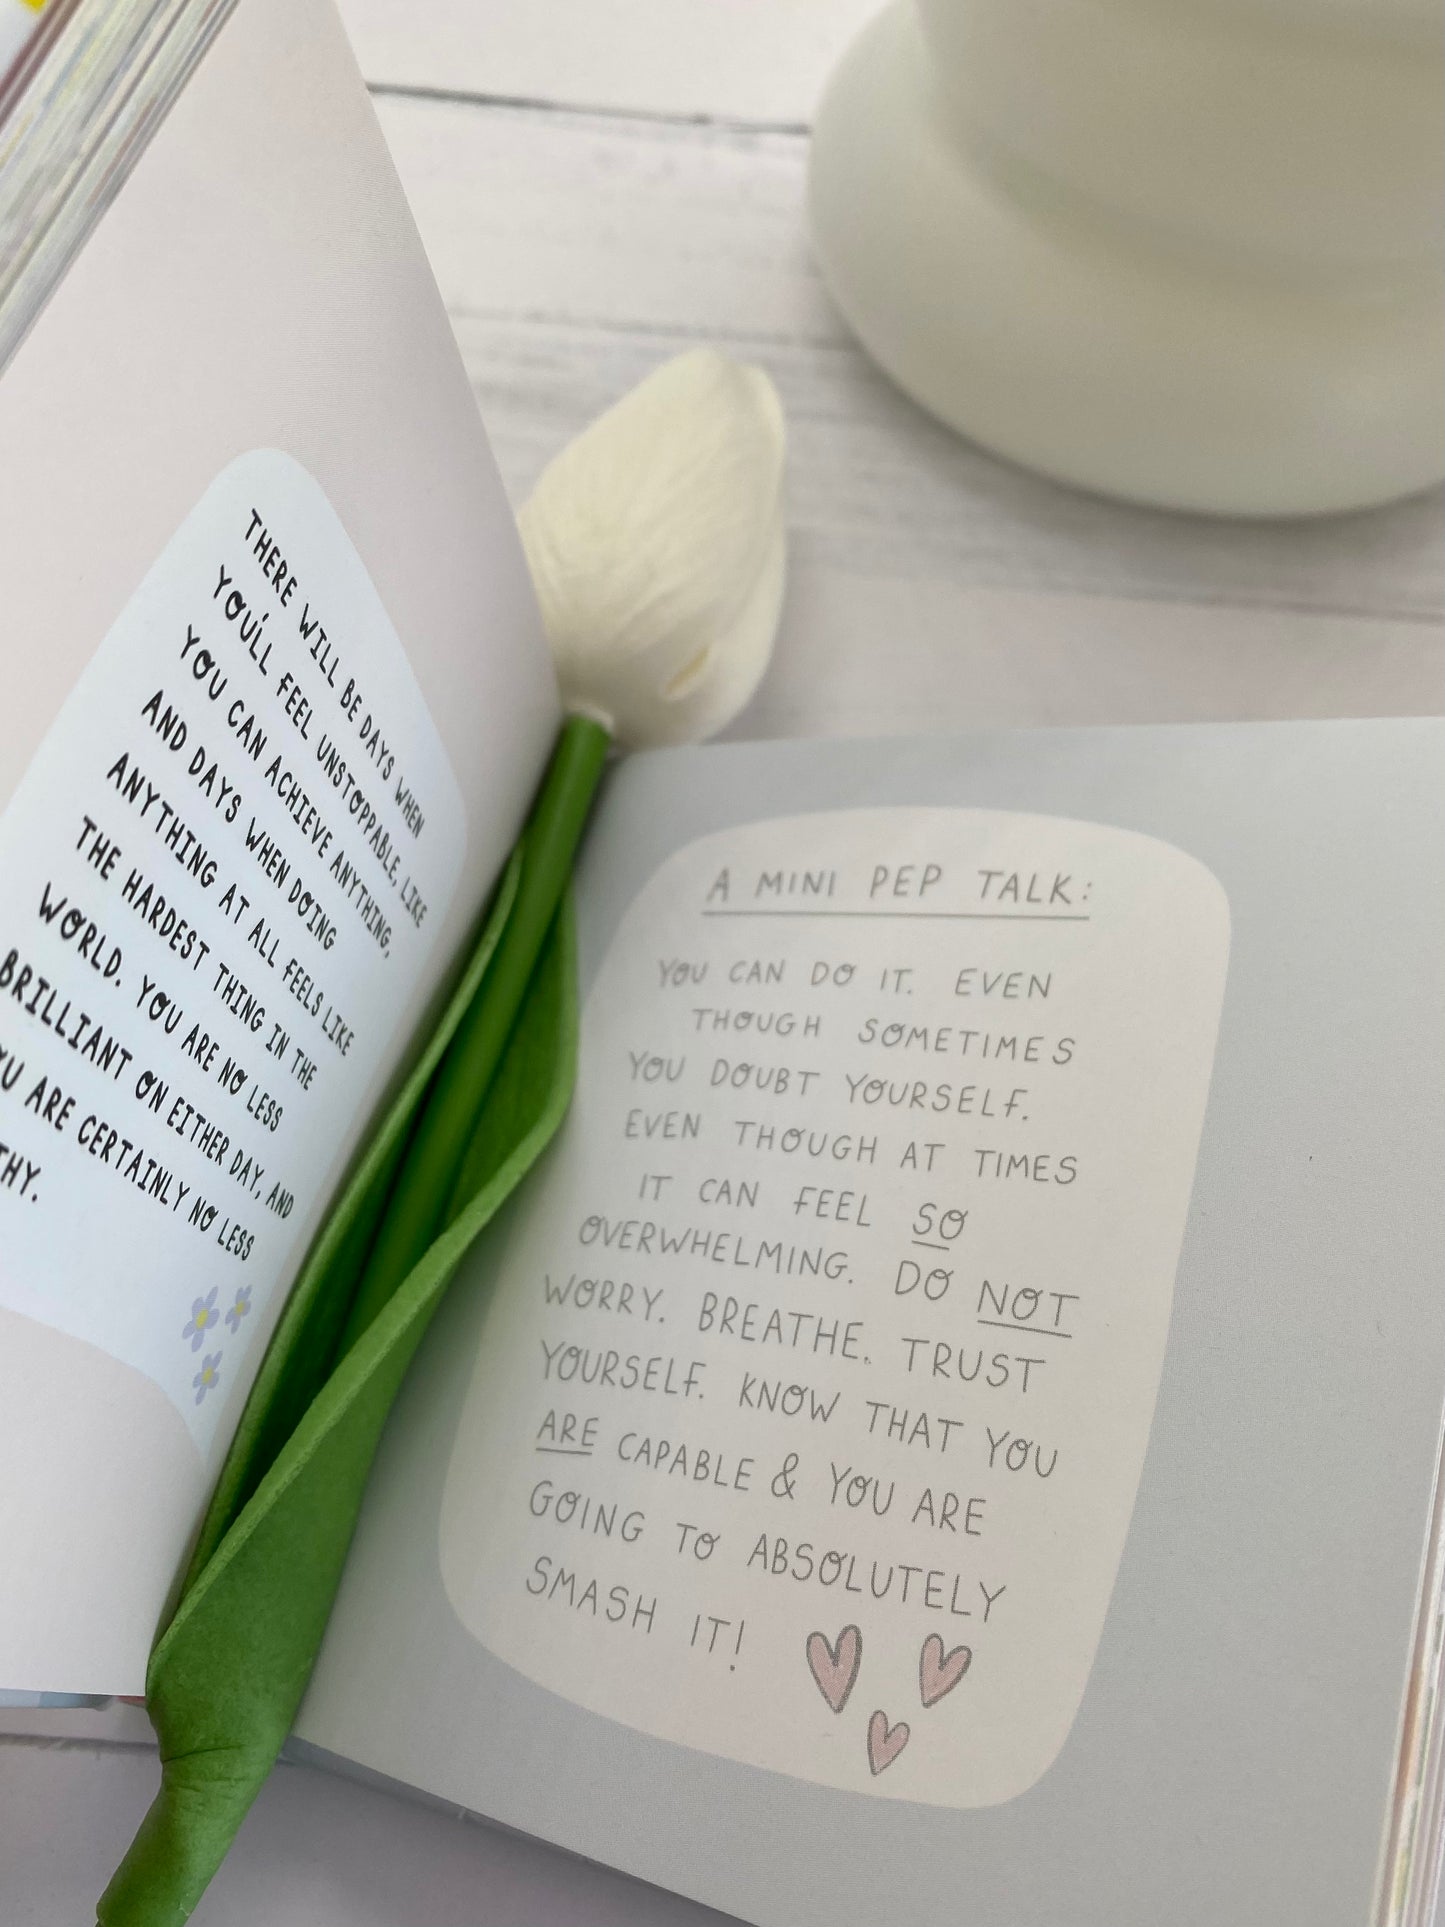 THERE WILL BE DAYS WHEN
YOU'LL FEEL UNSTOPPABLE, LIKE
YOU CAN ACHIEVE ANYTHING,
AND DAYS WHEN DOING
ANYTHING AT ALL FEELS LIKE
THE HARDEST THING IN THE
WORLD. YOU ARE NO LESS
BRILLIANT ON EITHER DAY, AND
ARE CERTAINLY NO LESS
A MINI PEP TALK:
YOU CAN DO IT. EVEN
THOUGH SOMETIMES
YOU DOUBT YOURSELF.
EVEN THOUGH AT TIMES
IT CAN FEEL SO
OVERWHELMING. DO NOT
WORRY. BREATHE. TRUST
YOURSELF. KNOW THAT YOU
ARE CAPABLE & YOU ARE
GOING TO ABSOLUTELY
SMASH IT!